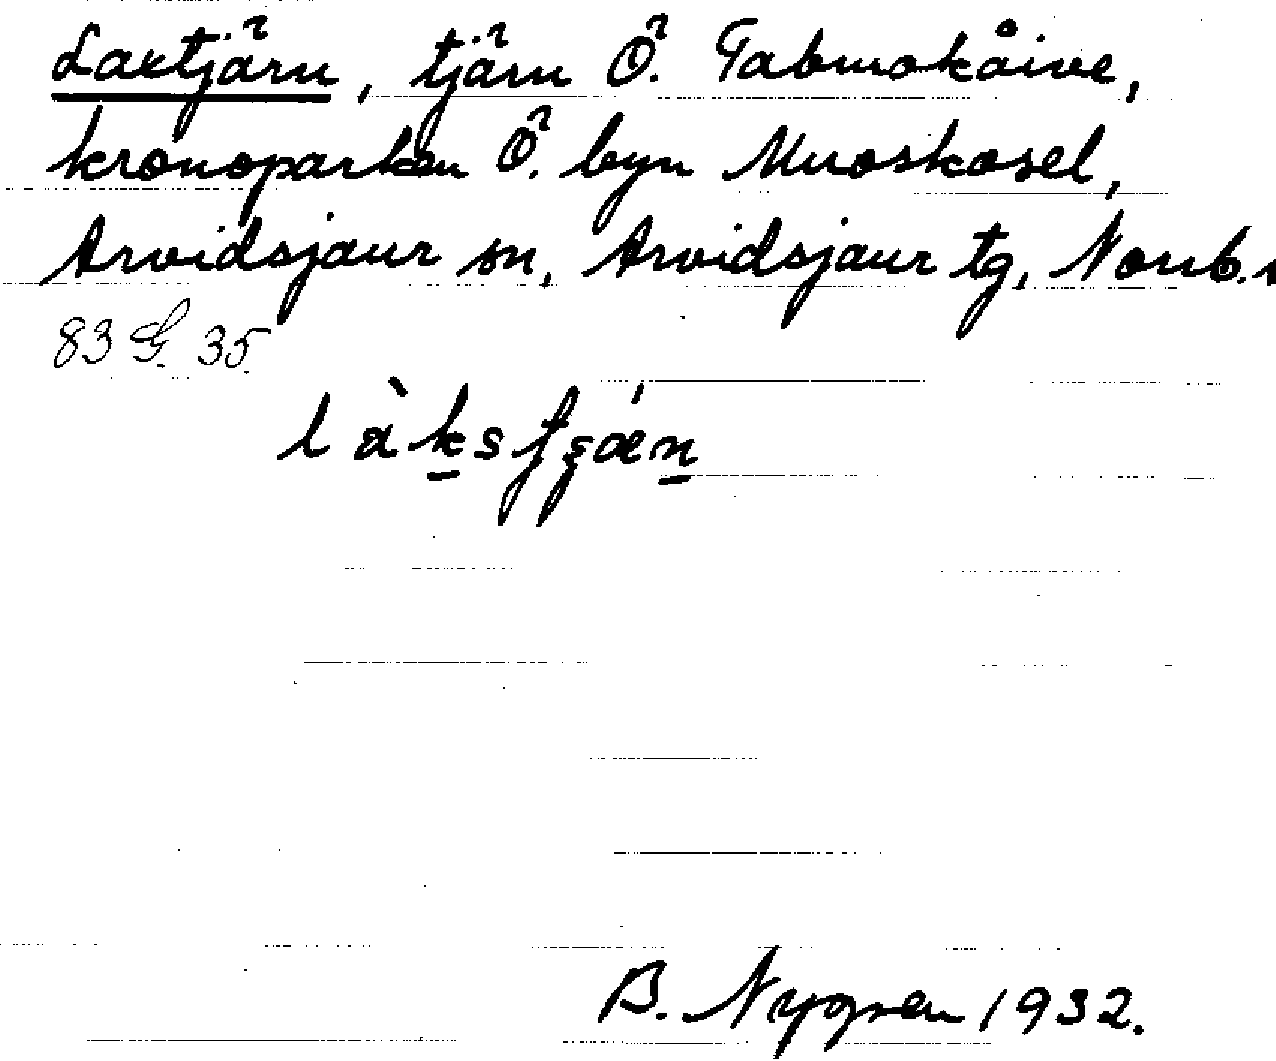 Laxtjärn, tjärn Ö. Tabmokåive,
kronoparken Ö. byn Muoskosel,
Arvidsjaur sn, Arvidsjaur tg, Norrb.
83 G 35
B. Nygren 1932.